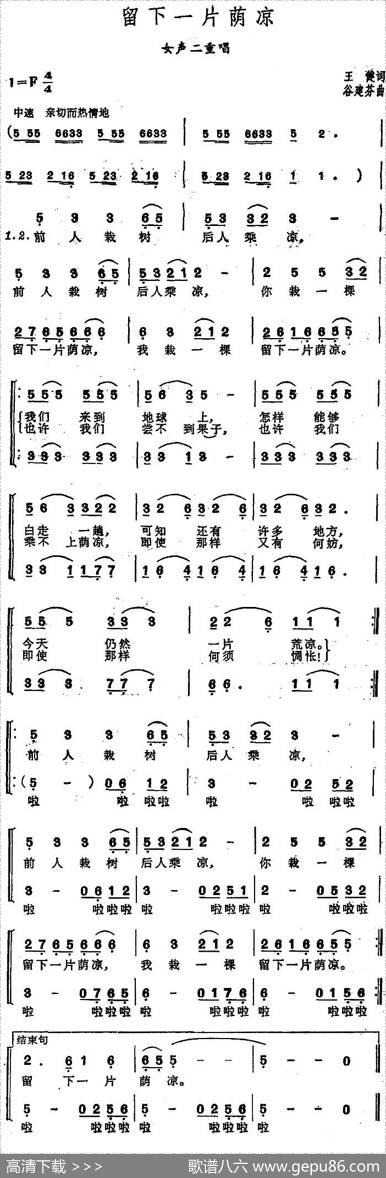 留下一片荫凉
女声二重唱
1=F 4/4
王健词
谷建芬曲
中速 亲切而热情地
(5 55 6633 5 55 6633 5 55 6633 5 2 .
5 23 2 16 5 23 2 16 5 23 2 16 1 1 . )
5 3 3 65 5 3 32 3 -
1.2.前人栽树 后人乘凉,
5 3 3 65 53212 - 2 5 5 32
前人栽树 后人乘凉, 你栽一棵
2765666 6 3 212 2616655
留下一片荫凉, 我栽一棵 留下一片荫凉。
555 555 5 6 35 - 555 555
我们 来到 地球 上, 怎样 能够
也许 我们 尝不 到果子, 也许 我们
333 333 33 13 - 333 333
56 3322 32 632 632 632 .
白走 一趟, 可知 还有 许多 地方,
乘不 上荫凉, 即使 那样 又有 何妨,
33 1177 16 416 416 416 .
55 5 33 3 2 2 6 11 1
今天 仍然 一片 荒凉。
即使 那样 何须 惆怅!
33 3 77 7 66 . 11 1
5 3 3 65 53 32 3 -
前人栽树 后人乘凉,
(5 - ) 06 12 3 - 02 52
啦 啦 啦啦 啦 啦 啦啦
5 3 3 65 53212 - 2 5 5 32
前人栽树 后人乘凉, 你栽一棵
3 - 0612 3 - 0251 2 - 0532
啦 啦啦啦 啦 啦啦啦 啦 啦啦啦
2765666 6 3 212 2616655
留下一片荫凉, 我栽一棵 留下一片荫凉。
3 - 0765 6 - 0165 6 - 0156
啦 啦啦啦 啦 啦啦啦 啦 啦啦啦
结束句
2. 616 655 - - 5 - - 0
留 下一片 荫凉。
5 - 0256 5 - 0256 5 - - 0
啦 啦啦啦 啦 啦啦啦 啦
高清下载 >>>
歌谱八六 www.gepu86.com